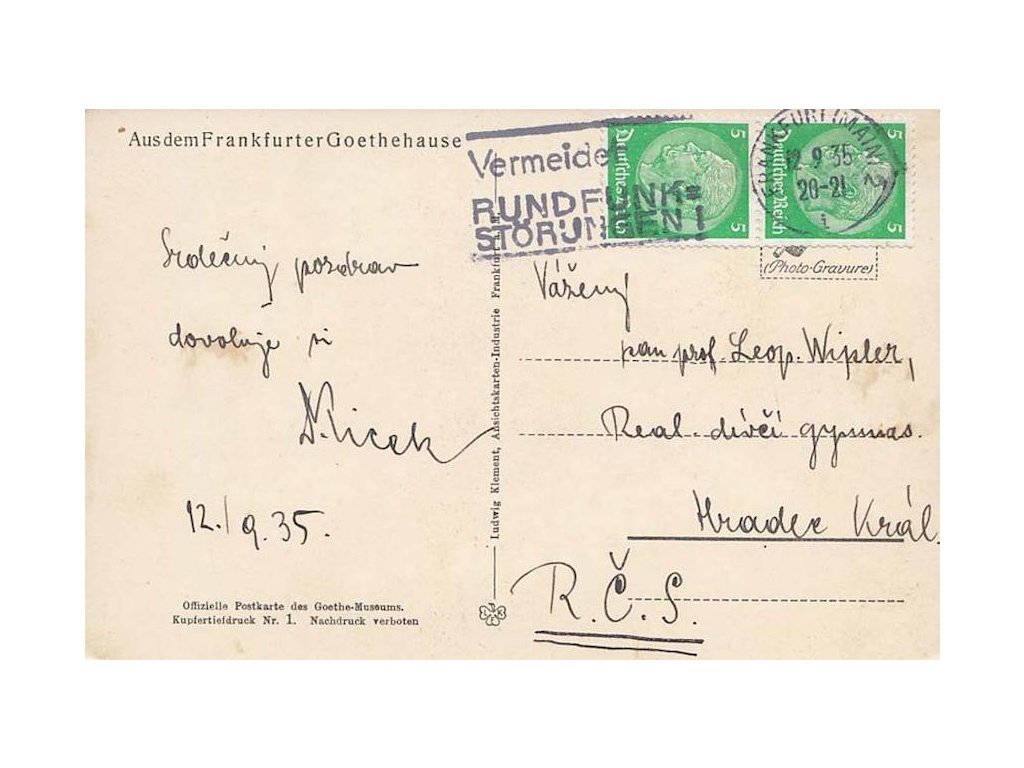 Aus dem Frankfurter Goethehause
Vermeidet
RUNDFUNK=
STÖRUNGEN!
5
Deutsches Reich
5
5
Deutsches Reich
5
FRANKFURT (MAIN)
12.9.35
20-21
i
(Photo-Gravure)
Srdečný pozdrav
dovoluje si
12./9. 35.
Vážený
pan prof. Leop. Wipler,
Real. dívčí gymnas.
Hradec Král.
R.Č.S.
Ludwig Klement, Ansichtskarten-Industrie Frankfurt a. M.
Offizielle Postkarte des Goethe-Museums.
Kupfertiefdruck Nr. 1. Nachdruck verboten